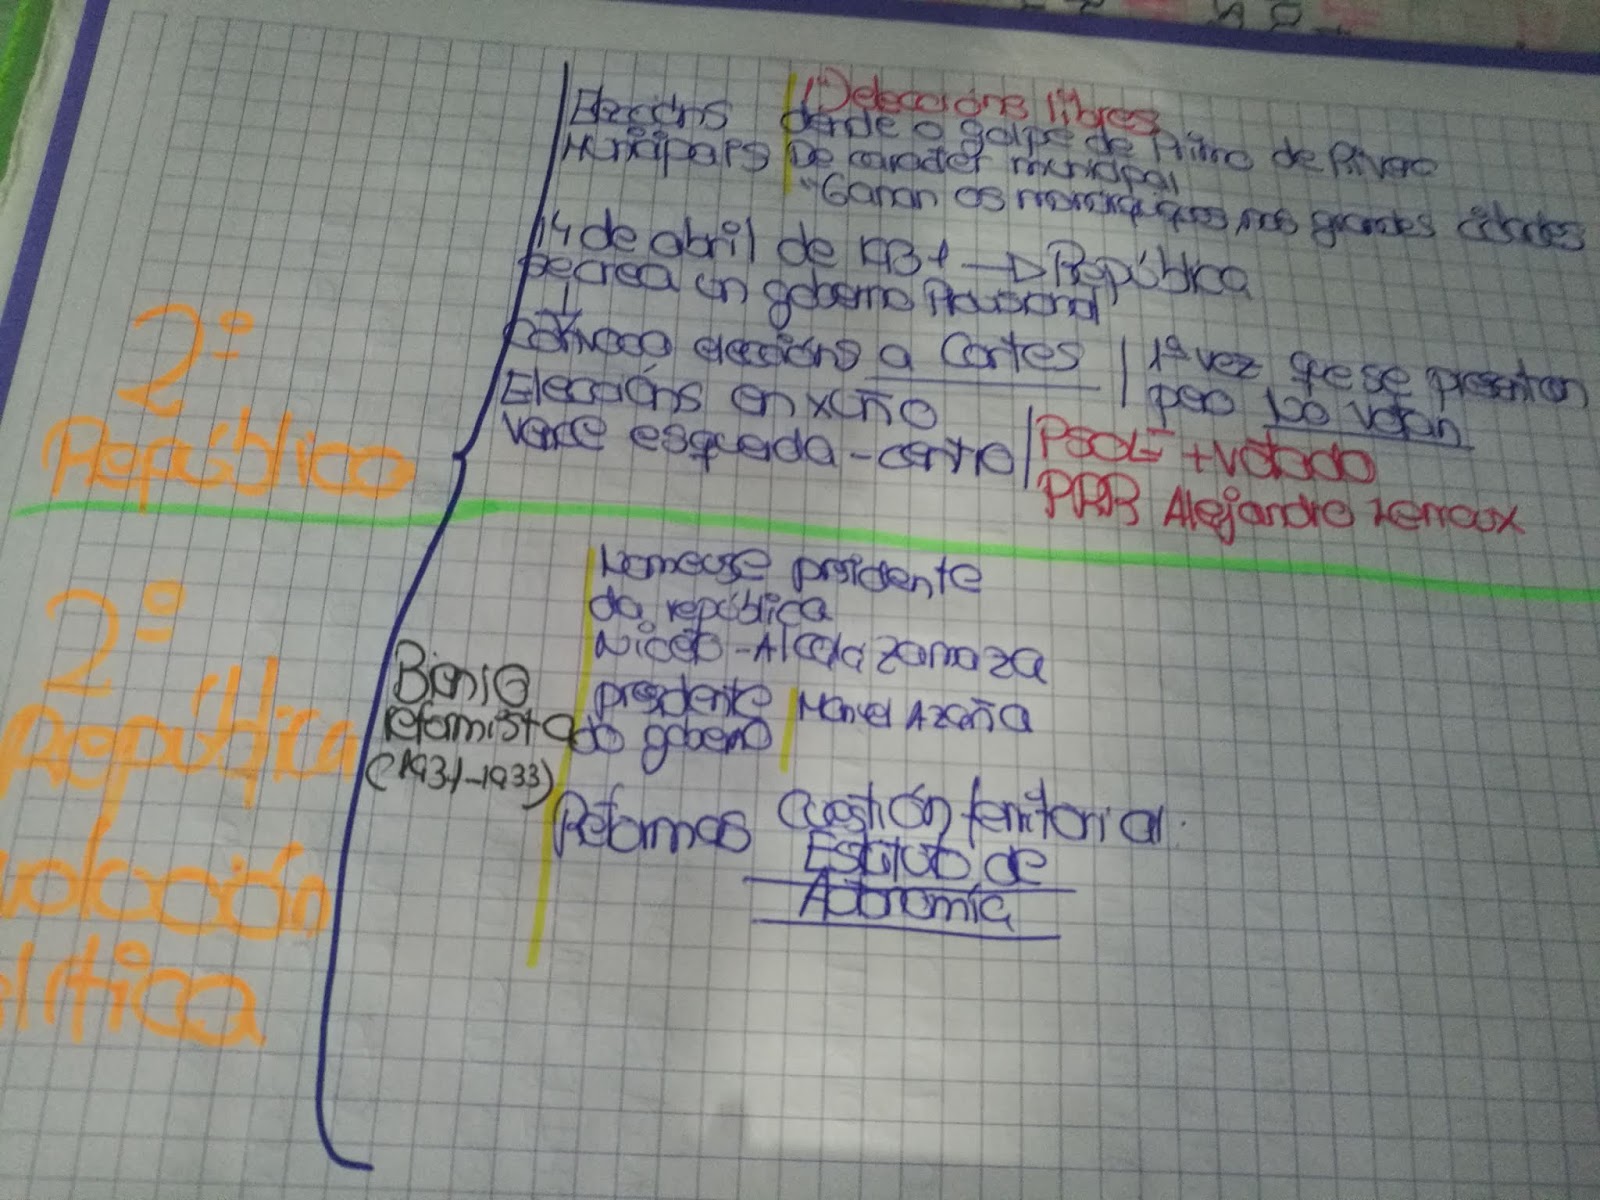 2º
República
Eleccións
Municipais
1º) eleccións libres
dende o golpe de Primo de Rivera
De carácter municipal
Gañan os monárquicos nas grandes cidades
14 de abril de 1931 → República
Se crea un goberno Provisional
Convoca eleccións a Cortes
1ª vez que se presentan
pero no votan
Eleccións en xuño
Vence esquerda-centro
PSOE + votado
PRR Alejandro Lerroux
2º
República
volución
lítica
Bienio
reformista
(1931-1933)
Nomease presidente
da república
Niceto-Alcalá Zamaza
presidente
do goberno
Manuel Azaña
Reformas
Cuestión territorial.
Estatuto de
Autonomía